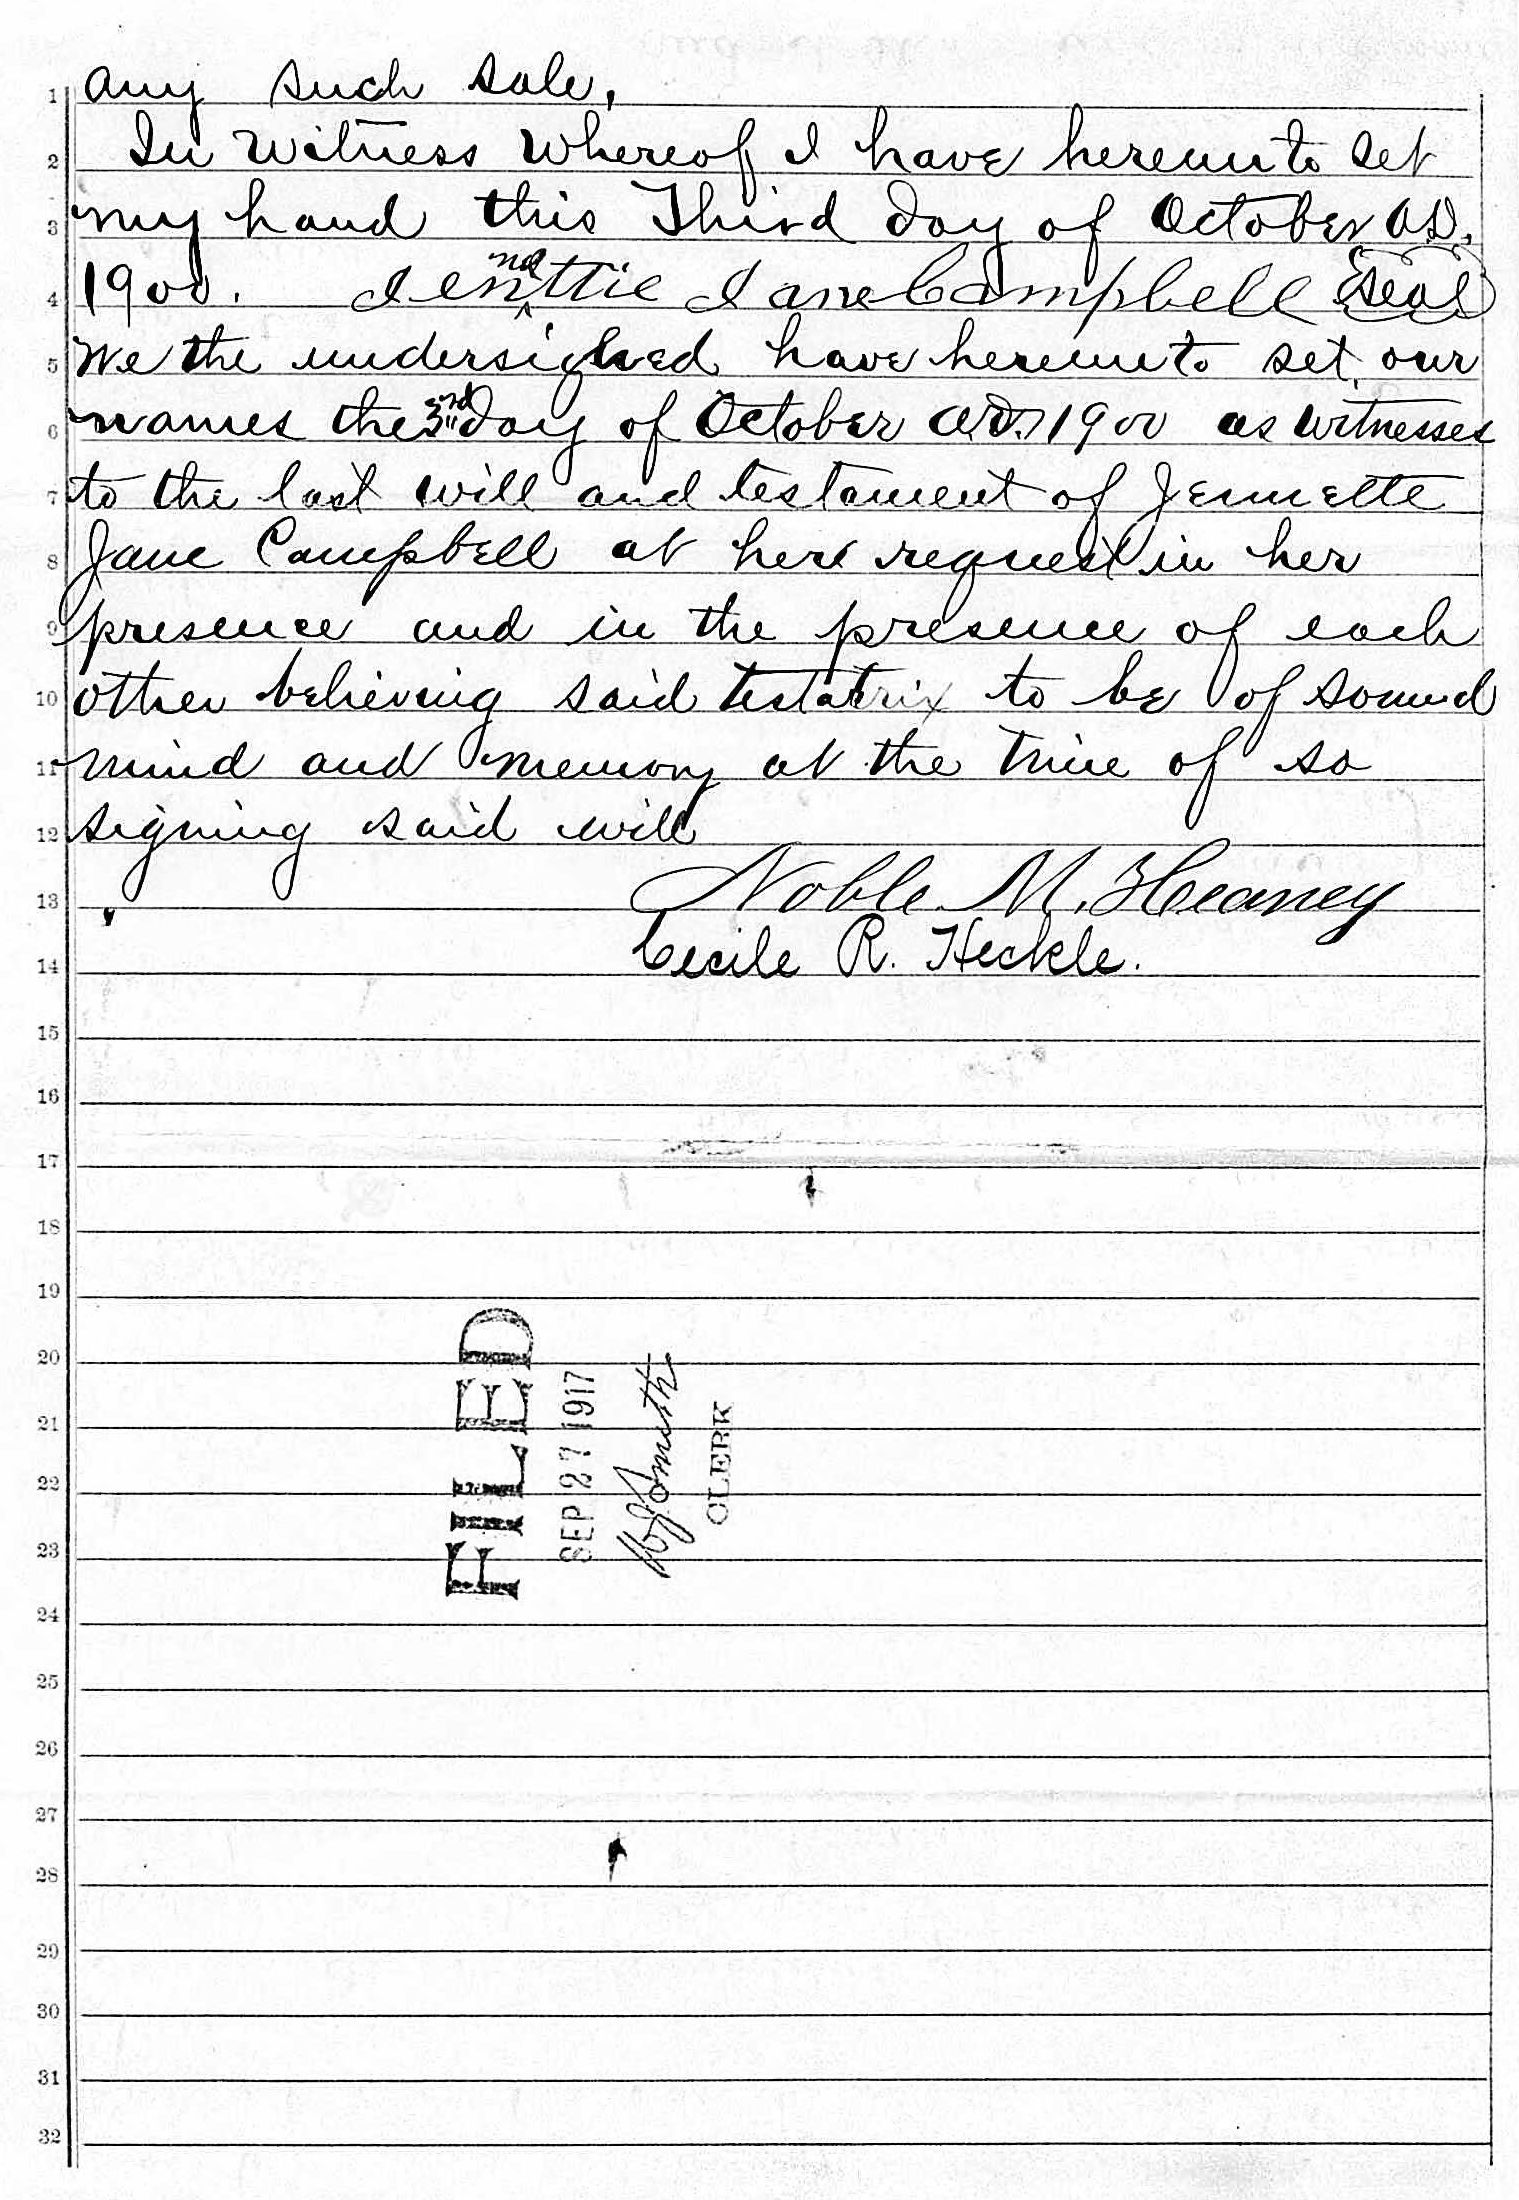 any such sale,
In Witness Whereof I have hereunto set
my hand this Third day of October A.D.
1900. Jennettie Jane Campbell Seal
We the undersigned have hereunto set our
names the 3rd day of October A.D. 1900 as witnesses
to the last will and testament of Jennette
Jane Campbell at her request in her
presence and in the presence of each
other believing said testatrix to be of sound
mind and memory at the time of so
signing said will
Noble M. Heaney
Cecile R. Heckle.
FILED
SEP 27 1917
W J Smith
CLERK
1
2
3
4
5
6
7
8
9
10
11
12
13
14
15
16
17
18
19
20
21
22
23
24
25
26
27
28
29
30
31
32